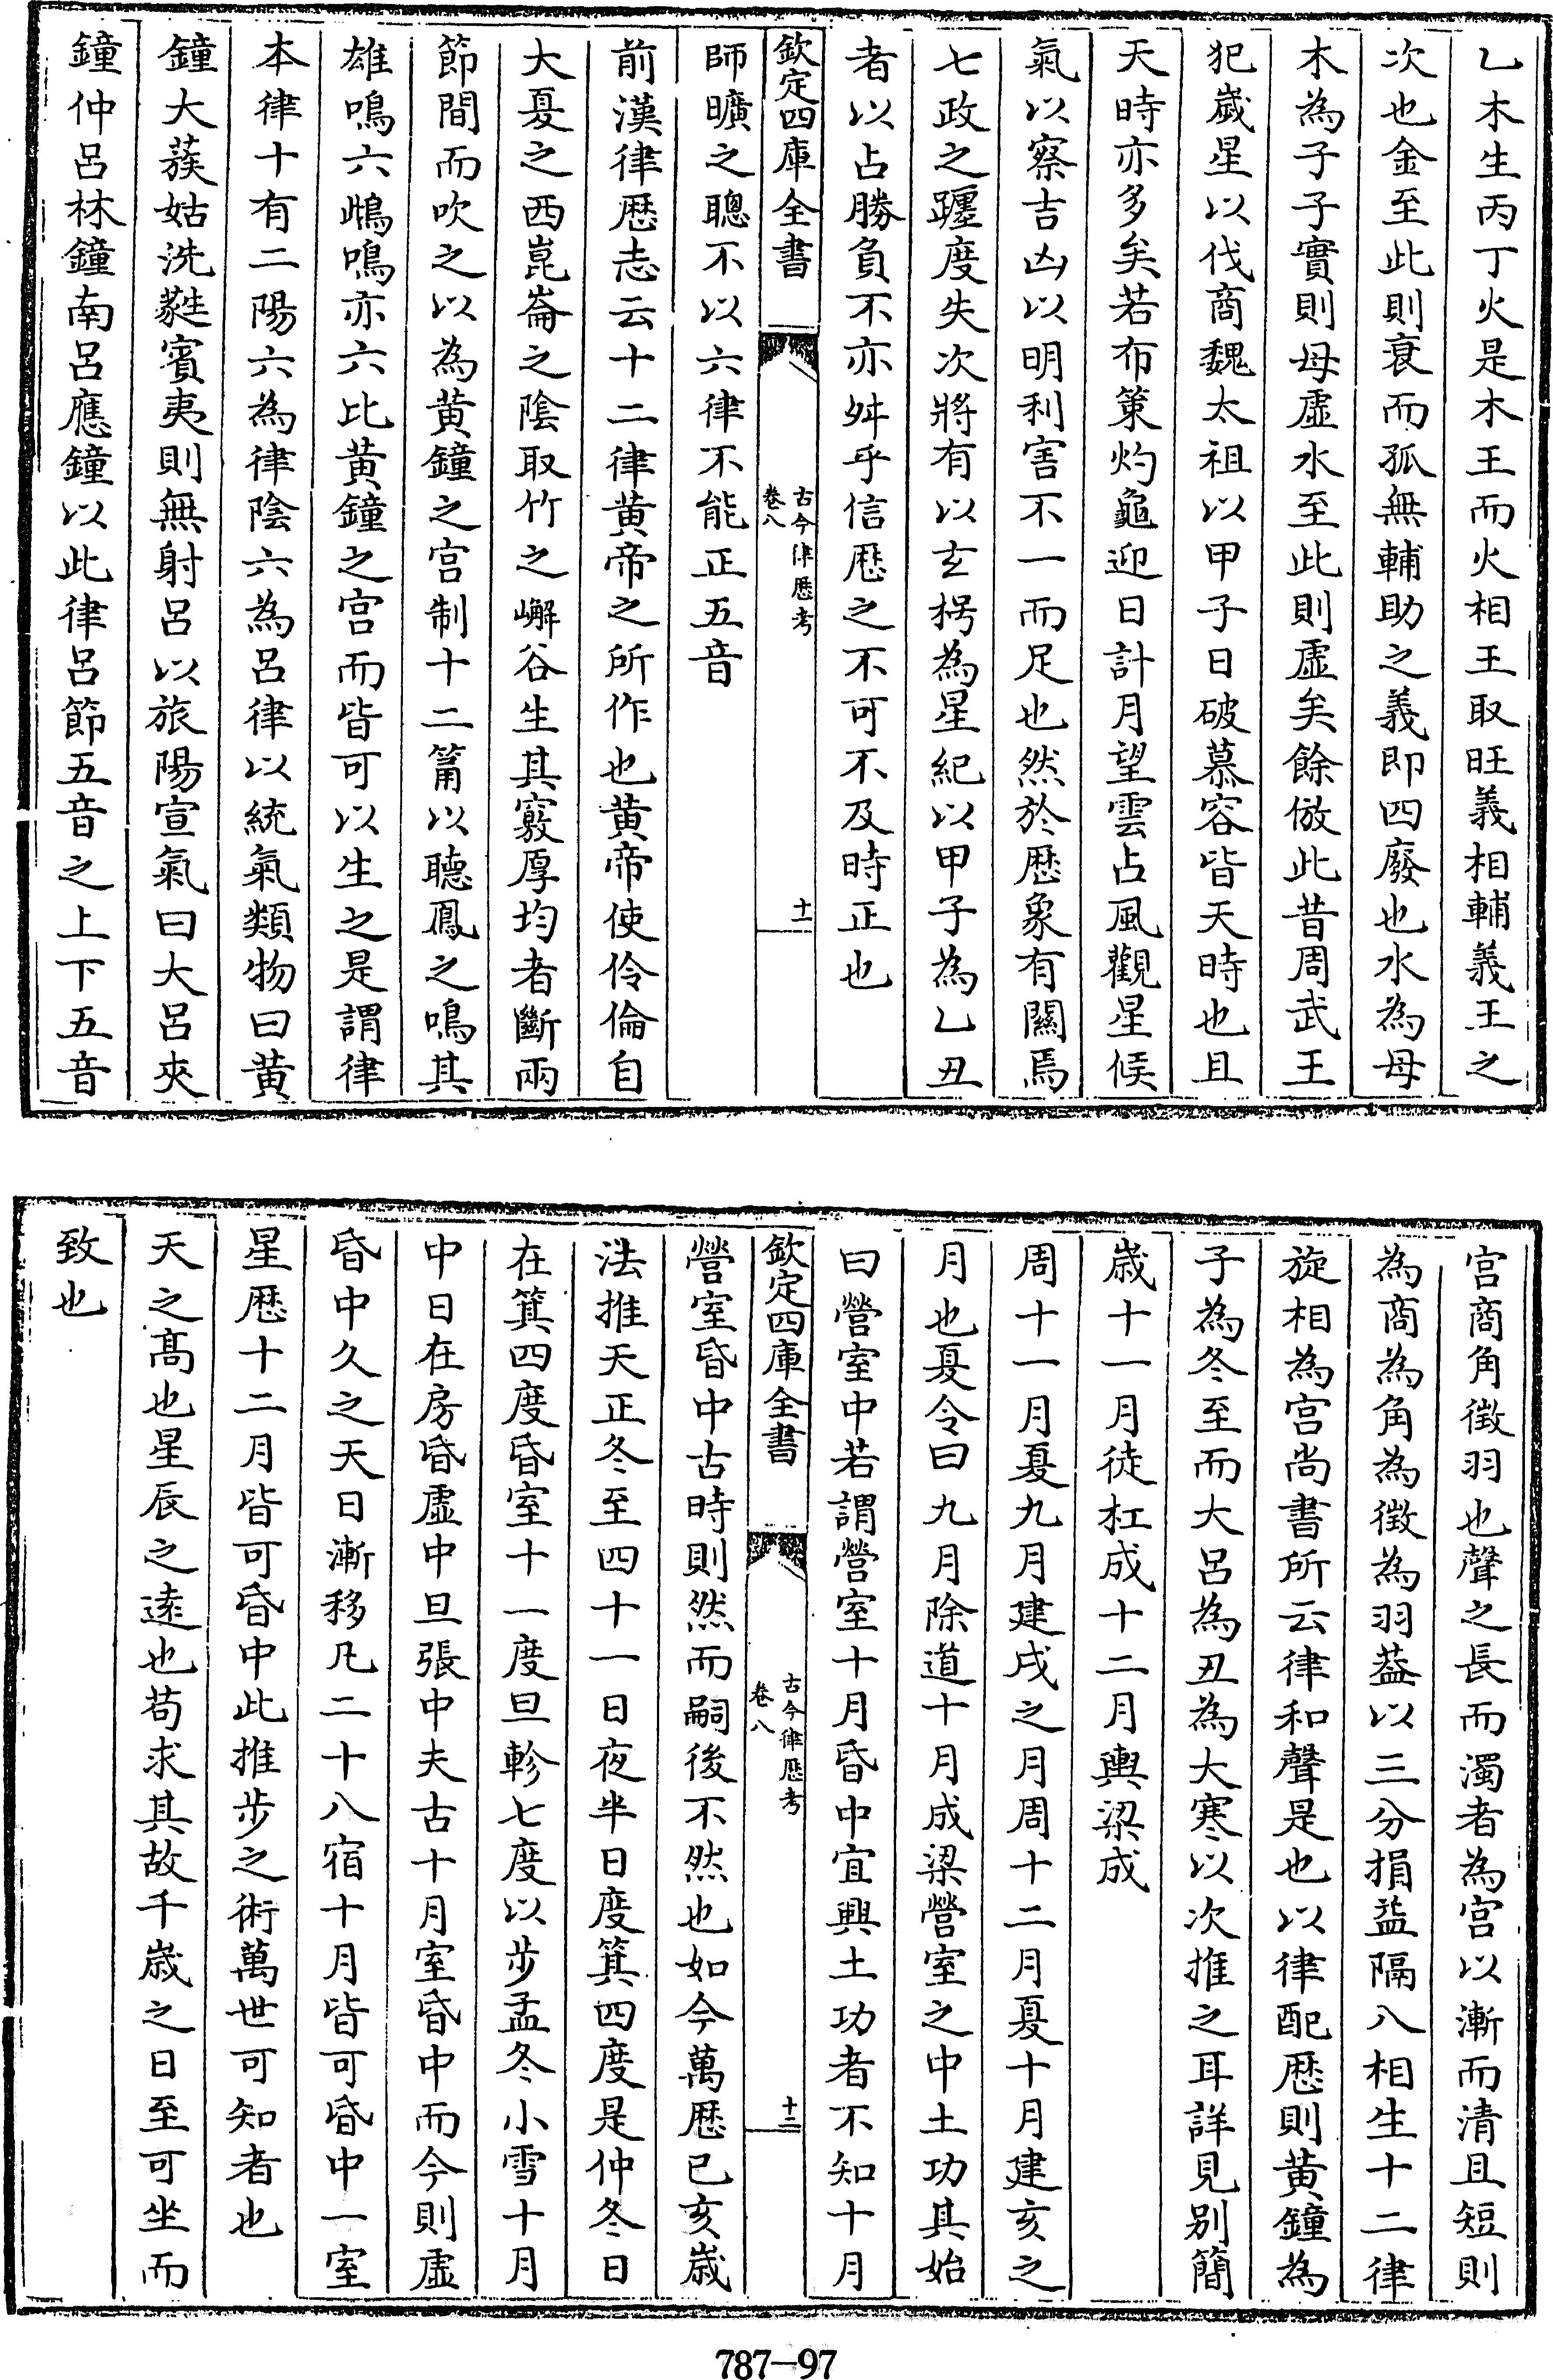 乙木生丙丁火是木王而火相王取旺義相輔義王之
次也金至此則衰而孤無輔助之義即四廢也水為母
木為子子實則母虛水至此則虛矣餘倣此昔周武王
犯嵗星以伐商魏太祖以甲子日破慕容皆天時也且
天時亦多矣若布策灼龜迎日計月望雲占風觀星候
氣以察吉凶以明利害不一而足也然於厯象有關焉
七政之躔度失次將有以玄枵為星紀以甲子為乙丑
者以占勝負不亦舛乎信厯之不可不及時正也
欽定四庫全書
古今律厯考
卷八
十一
師曠之聰不以六律不能正五音
前漢律厯志云十二律黄帝之所作也黄帝使伶倫自
大夏之西崑崙之陰取竹之嶰谷生其竅厚均者斷兩
節間而吹之以為黄鐘之宫制十二筩以聽鳳之鳴其
雄鳴六鴟鳴亦六比黄鐘之宫而皆可以生之是謂律
本律十有二陽六為律陰六為呂律以統氣類物曰黄
鐘大蔟姑洗蕤賓夷則無射呂以旅陽宣氣曰大呂夾
鐘仲呂林鐘南呂應鐘以此律呂節五音之上下五音
宫商角徴羽也聲之長而濁者為宫以漸而清且短則
為商為角為徴為羽葢以三分損益隔八相生十二律
旋相為宫尚書所云律和聲是也以律配厯則黄鐘為
子為冬至而大呂為丑為大寒以次推之耳詳見别簡
歳十一月徒杠成十二月輿梁成
周十一月夏九月建戌之月周十二月夏十月建亥之
月也夏令曰九月除道十月成梁營室之中土功其始
曰營室中若謂營室十月昏中宜興土功者不知十月
欽定四庫全書
古今律厯考
卷八
十二
營室昏中古時則然而嗣後不然也如今萬厯已亥歳
法推天正冬至四十一日夜半日度箕四度是仲冬日
在箕四度昏室十一度旦軫七度以步孟冬小雪十月
中日在房昏虛中旦張中夫古十月室昏中而今則虛
昏中久之天日漸移凡二十八宿十月皆可昏中一室
星厯十二月皆可昏中此推步之術萬世可知者也
天之髙也星辰之逺也茍求其故千歳之日至可坐而
致也
787—97